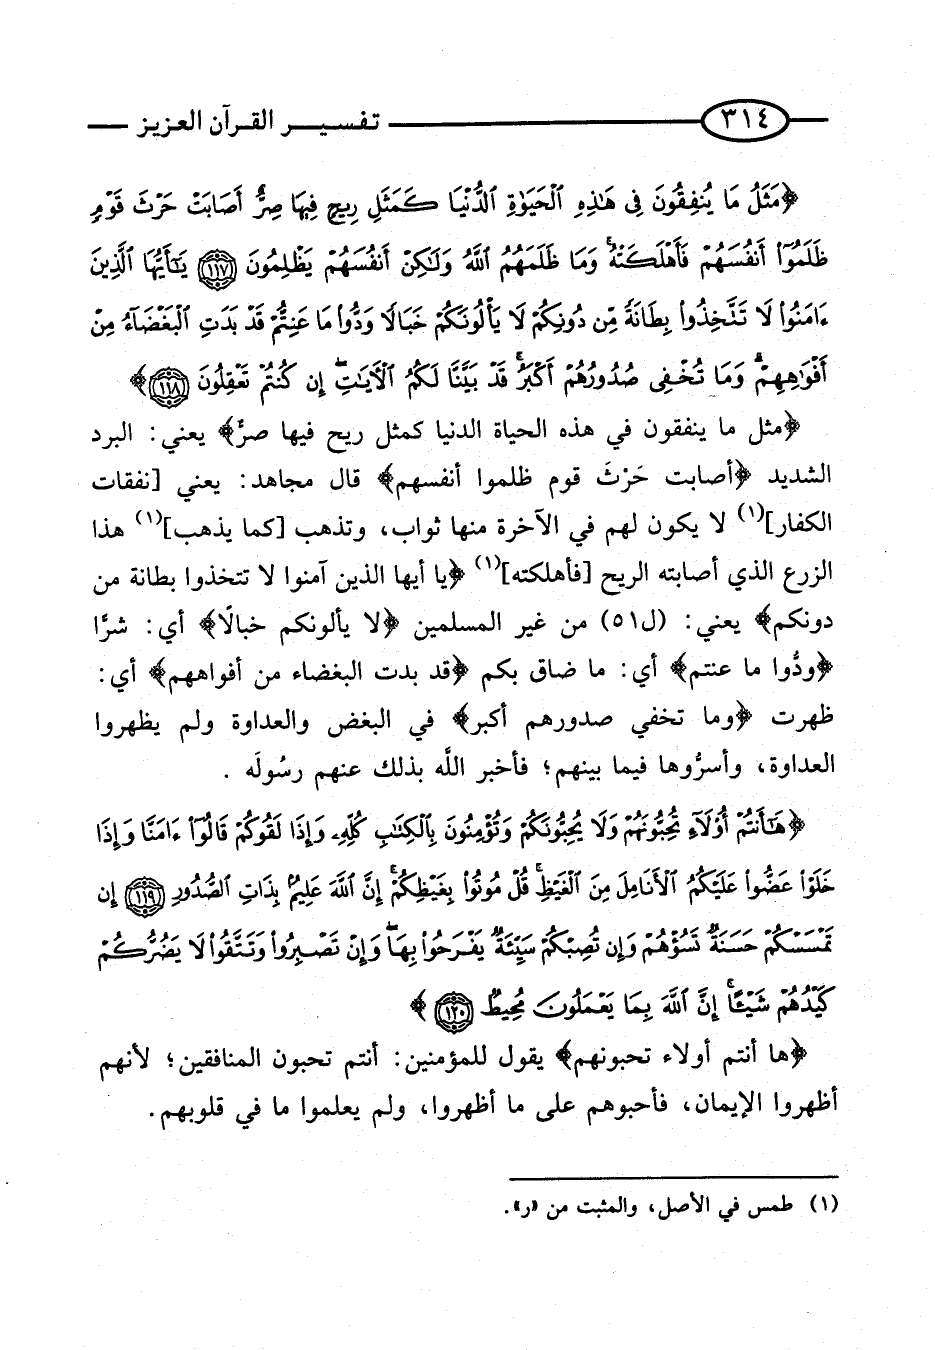 ٣١٤ تفسير القرآن العزيز
﴿مَثَلُ مَا يُنفِقُونَ فِى هَٰذِهِ ٱلْحَيَوٰةِ ٱلدُّنْيَا كَمَثَلِ رِيحٍ فِيهَا صِرٌّ أَصَابَتْ حَرْثَ قَوْمٍ
ظَلَمُوٓا۟ أَنفُسَهُمْ فَأَهْلَكَتْهُ ۚ وَمَا ظَلَمَهُمُ ٱللَّهُ وَلَٰكِنْ أَنفُسَهُمْ يَظْلِمُونَ ﴿١١٧﴾ يَٰٓأَيُّهَا ٱلَّذِينَ
ءَامَنُوا۟ لَا تَتَّخِذُوا۟ بِطَانَةً مِّن دُونِكُمْ لَا يَأْلُونَكُمْ خَبَالًا وَدُّوا۟ مَا عَنِتُّمْ قَدْ بَدَتِ ٱلْبَغْضَآءُ مِنْ
أَفْوَٰهِهِمْ وَمَا تُخْفِى صُدُورُهُمْ أَكْبَرُ ۚ قَدْ بَيَّنَّا لَكُمُ ٱلْءَايَٰتِ ۖ إِن كُنتُمْ تَعْقِلُونَ ﴿١١٨﴾﴾
﴿مثل ما ينفقون في هذه الحياة الدنيا كمثل ريح فيها صرٌّ﴾ يعني: البرد
الشديد ﴿أصابت حَرْثَ قوم ظلموا أنفسهم﴾ قال مجاهد: يعني [نفقات
الكفار](١) لا يكون لهم في الآخرة منها ثواب، وتذهب [كما يذهب](١) هذا
الزرع الذي أصابته الريح [فأهلكته](١) ﴿يا أيها الذين آمنوا لا تتخذوا بطانة من
دونكم﴾ يعني: (ل٥١) من غير المسلمين ﴿لا يألونكم خبالًا﴾ أي: شرًّا
﴿ودُّوا ما عنتم﴾ أي: ما ضاق بكم ﴿قد بدت البغضاء من أفواههم﴾ أي:
ظهرت ﴿وما تخفي صدورهم أكبر﴾ في البغض والعداوة ولم يظهروا
العداوة، وأسرُّوها فيما بينهم؛ فأخبر اللَّه بذلك عنهم رسُولَه .
﴿هَٰٓأَنتُمْ أُو۟لَآءِ تُحِبُّونَهُمْ وَلَا يُحِبُّونَكُمْ وَتُؤْمِنُونَ بِٱلْكِتَٰبِ كُلِّهِۦ وَإِذَا لَقُوكُمْ قَالُوٓا۟ ءَامَنَّا وَإِذَا
خَلَوْا۟ عَضُّوا۟ عَلَيْكُمُ ٱلْأَنَامِلَ مِنَ ٱلْغَيْظِ ۚ قُلْ مُوتُوا۟ بِغَيْظِكُمْ ۗ إِنَّ ٱللَّهَ عَلِيمٌۢ بِذَاتِ ٱلصُّدُورِ ﴿١١٩﴾ إِن
تَمْسَسْكُمْ حَسَنَةٌ تَسُؤْهُمْ وَإِن تُصِبْكُمْ سَيِّئَةٌ يَفْرَحُوا۟ بِهَا ۖ وَإِن تَصْبِرُوا۟ وَتَتَّقُوا۟ لَا يَضُرُّكُمْ
كَيْدُهُمْ شَيْـًٔا ۗ إِنَّ ٱللَّهَ بِمَا يَعْمَلُونَ مُحِيطٌ ﴿١٢٠﴾﴾
﴿ها أنتم أولاء تحبونهم﴾ يقول للمؤمنين: أنتم تحبون المنافقين؛ لأنهم
أظهروا الإيمان، فأحبوهم على ما أظهروا، ولم يعلموا ما في قلوبهم.
(١) طمس في الأصل، والمثبت من «ر».